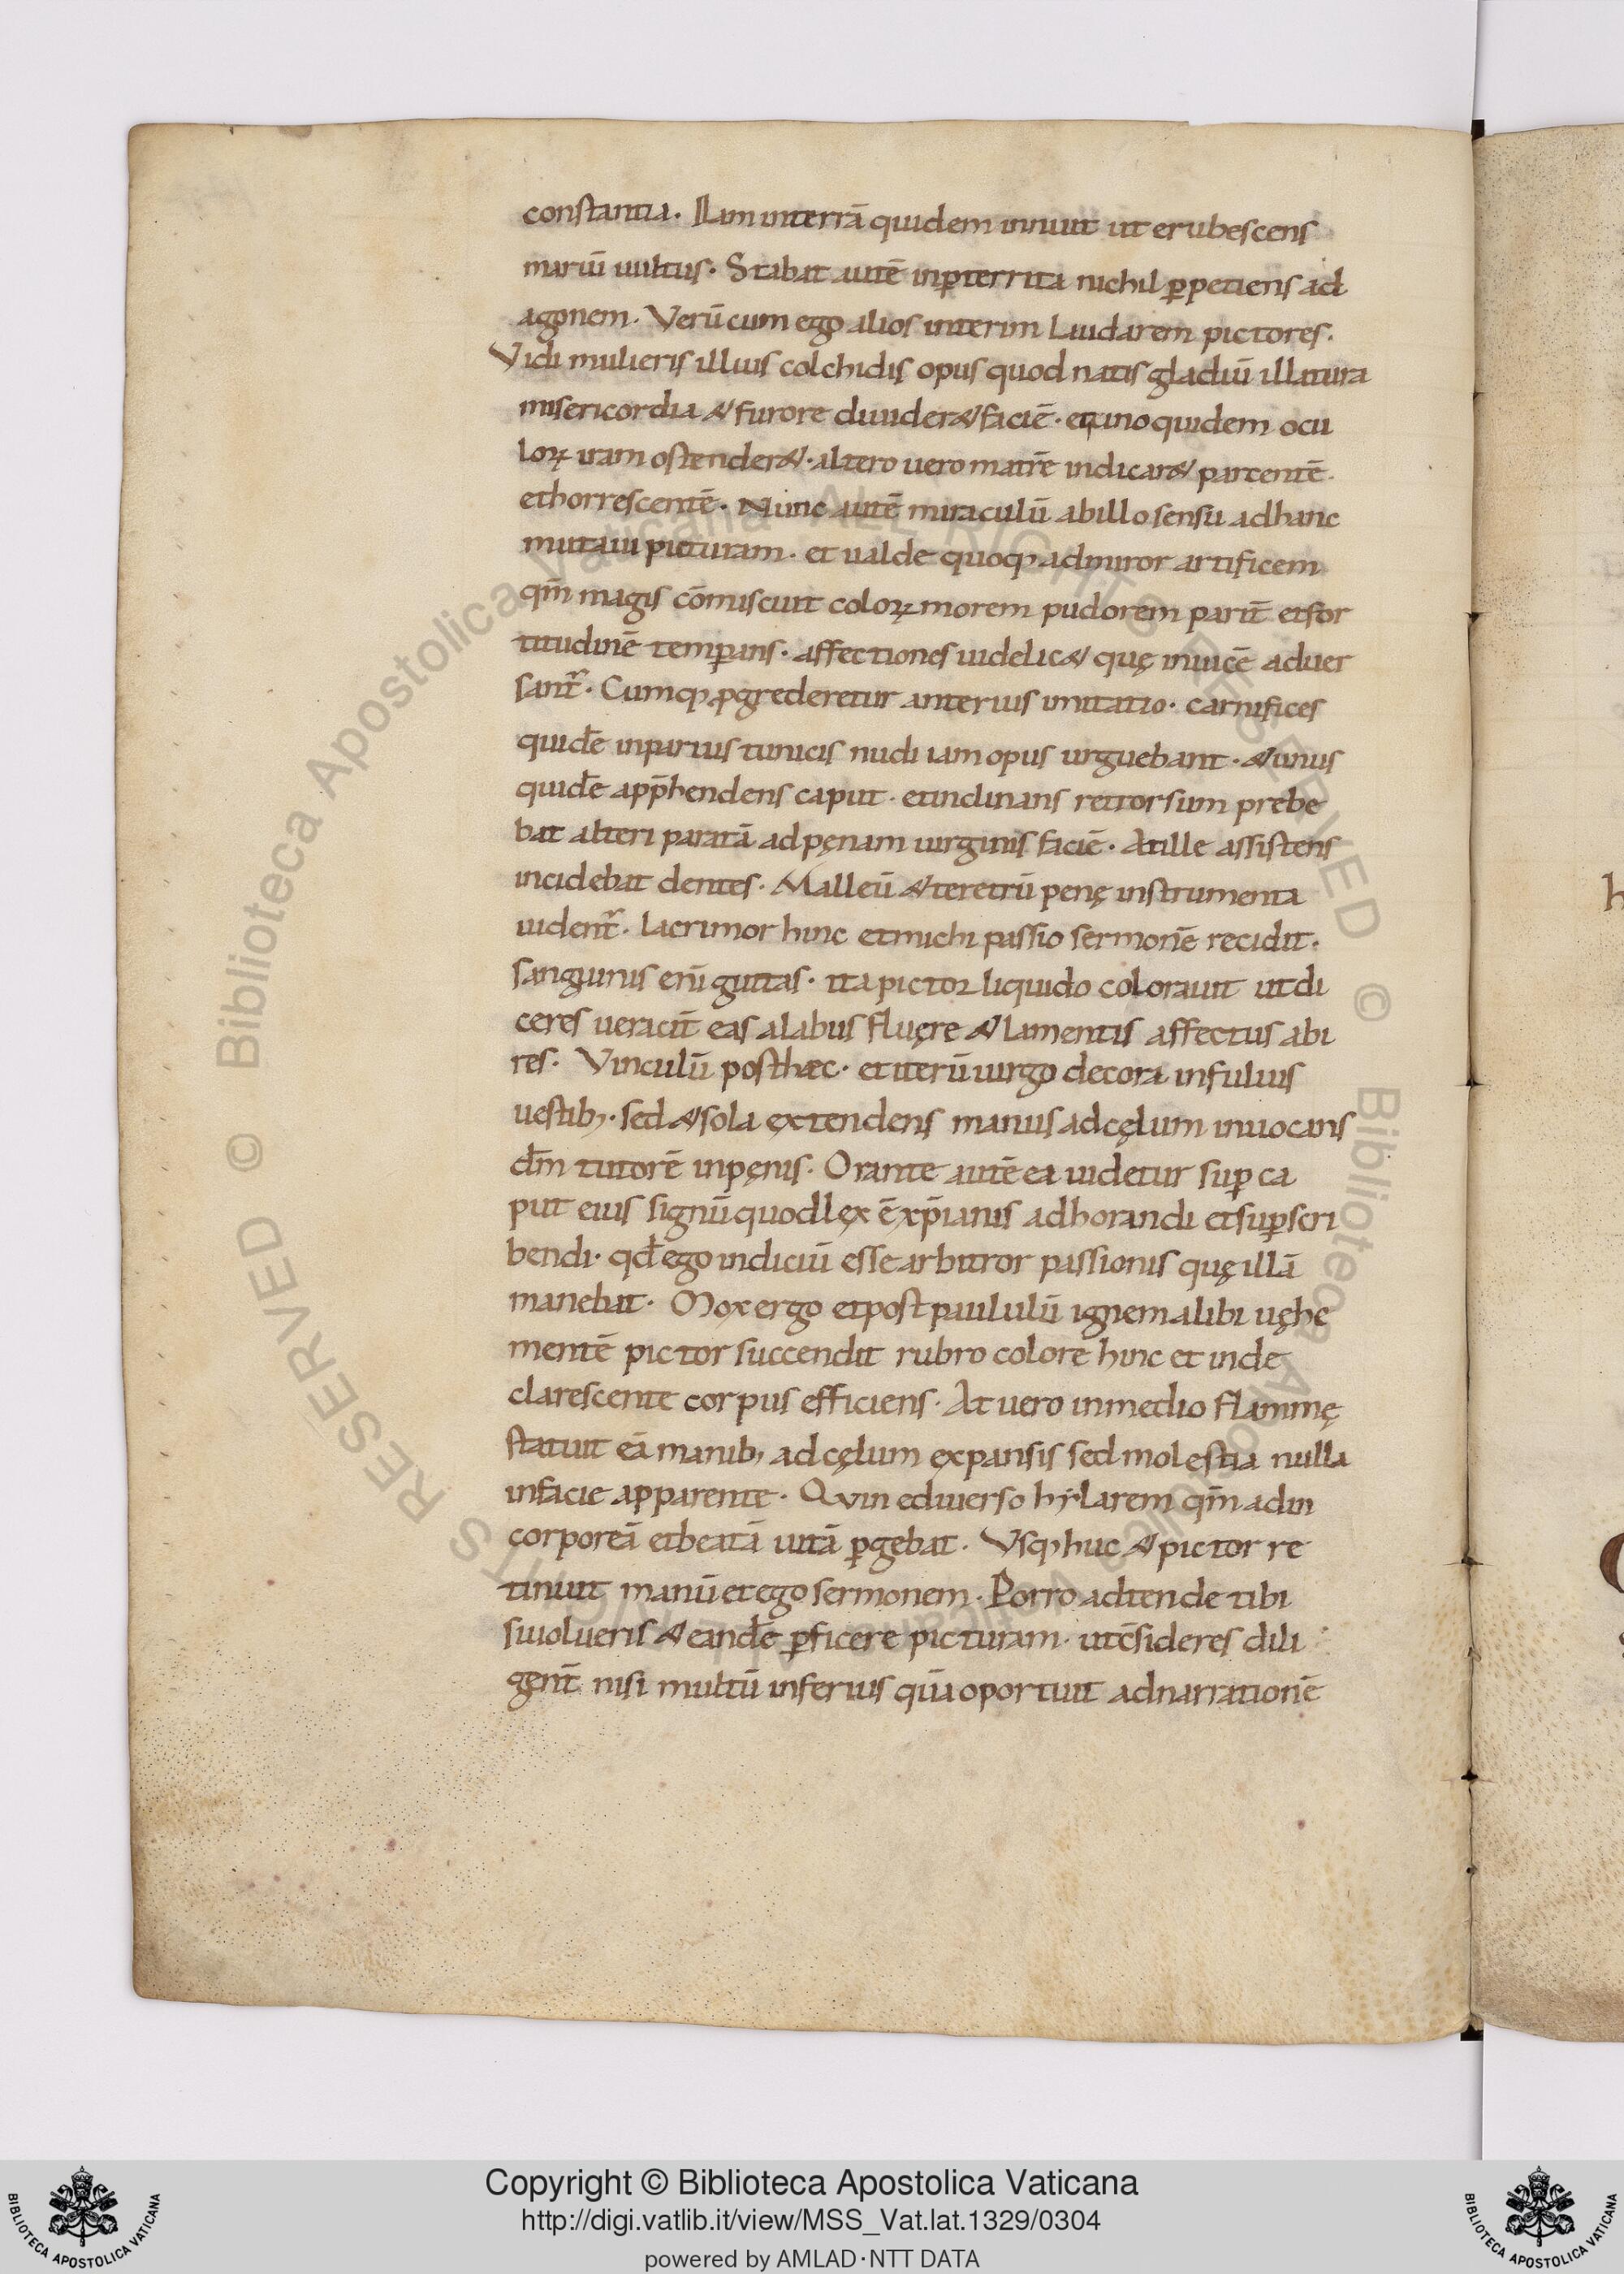 constantia. Nam interrā quidem innuit ut erubescens
mariū uultus. Stabat autē inꝑterrita nichil ꝑpetiens ad
agonem. Verū cum ego alios interim Laudarem pictores.
Vidi mulieris illius colchidis opus quod natis gladiū illatura
misericordia & furore diuider& faciē. et uno quidem ocu
loꝝ iram ostender&. altero uero matrē indicar& parcentē.
et horrescentē. Nunc autē miraculū abillo sensu adhanc
mutaui picturam. et ualde quoqꝫ admiror artificem
qm̄ magis cōmiscuit coloꝝ morem pudorem parit̄ etfor
titudinē temꝑans. affectiones uidelic& quę inuicē aduer
sant̄r. Cumqꝫ ꝓgrederetur anterius imitatio. carnifices
quidē inparuis tunicis nudi iam opus urguebant. & unus
quidē app̄hendens caput. etinclinans retrorsum prebe
bat alteri paratā adpęnam uirginis faciē. Atille assistens
incidebat dentes. Malleū & teretrū penę instrumenta
uident̄r. lacrimor hinc etmichi passio sermonē recidit.
sanguinis eni̅ guttas. ita pictor liquido colorauit utdi
ceres ueracit̄ eas alabiis fluęre & lamentis affectus abi
res. Vinculū posthæc. etiterū uirgo decora infuluis
uestibꝫ. sed & sola extendens manus adcęlum inuocans
dm̄ tutorē inpęnis. Orante autē ea uidetur suꝑ ca
put eius signū quodlęx ē xp̄ianis adhorandi etsuꝑscri
bendi. qd̄ ego indiciū esse arbitror passionis quę illā
manebat. Mox ergo etpost paululū ignem alibi uęhe
mentē pictor succendit rubro colore hinc et inde
clarescente corpus efficiens. At uero inmedio flammę
statuit eā manibꝫ adcęlum expansis sed molestia nulla
infacie apparente. Qvin ediuerso hylarem qm̄ adin
corporeā etbeatā uitā ꝑgebat. Vsqꝫ huc & pictor re
tinuit manū et ego sermonem. Porro adtende tibi
siuolueris & eandē ꝑficere picturam. utc̄sideres dili
gent̄ nisi multū inferius quā oportuit adnarrationē
Copyright © Biblioteca Apostolica Vaticana
http://digi.vatlib.it/view/MSS_Vat.lat.1329/0304
powered by AMLAD·NTT DATA
BIBLIOTECA APOSTOLICA VATICANA
BIBLIOTECA APOSTOLICA VATICANA